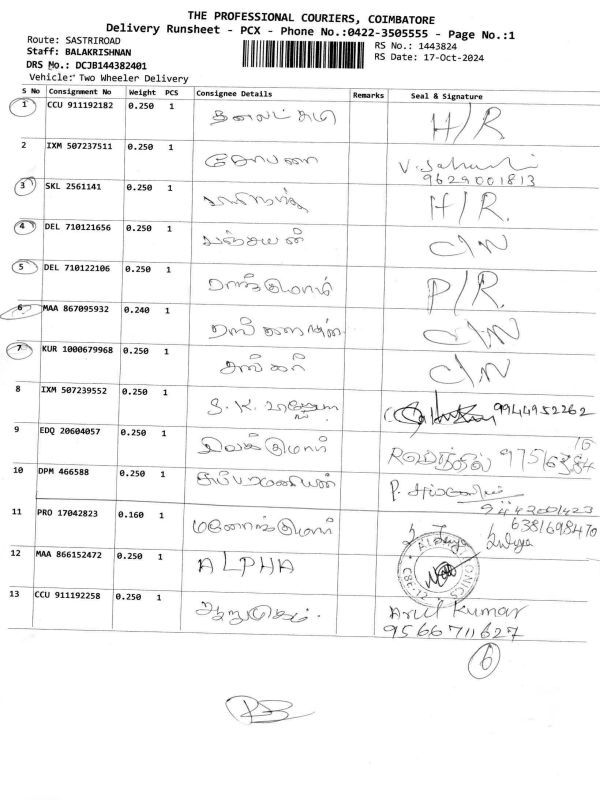 THE PROFESSIONAL COURIERS, COIMBATORE
Delivery Runsheet - PCX - Phone No.:0422-3505555 - Page No.:1
Route: SASTRIROAD
RS No.: 1443824
Staff: BALAKRISHNAN
RS Date: 17-Oct-2024
DRS No.: DCJB144382401
Vehicle: Two Wheeler Delivery
S No Consignment No Weight PCS Consignee Details Remarks Seal & Signature
1 CCU 911192182 0.250 1 தனலட்சுமி H/R
2 IXM 507237511 0.250 1
9629001813
3 SKL 2561141 0.250 1 H/R.
4 DEL 710121656 0.250 1 C/N
5 DEL 710122106 0.250 1 ராஜ்குமார் P/R.
6 MAA 867095932 0.240 1 C/N
7 KUR 1000679968 0.250 1 C/N
8 IXM 507239552 0.250 1 S.K. 9944952262
9 EDQ 20604057 0.250 1
10 DPM 466588 0.250 1 சுப்ரமணியன் P.
9443001423
11 PRO 17042823 0.160 1 மனோஜ்குமார் 6381698470
12 MAA 866152472 0.250 1 ALPHA
13 CCU 911192258 0.250 1 ஆறுமுகம். Arul Kumar
9566711627
6